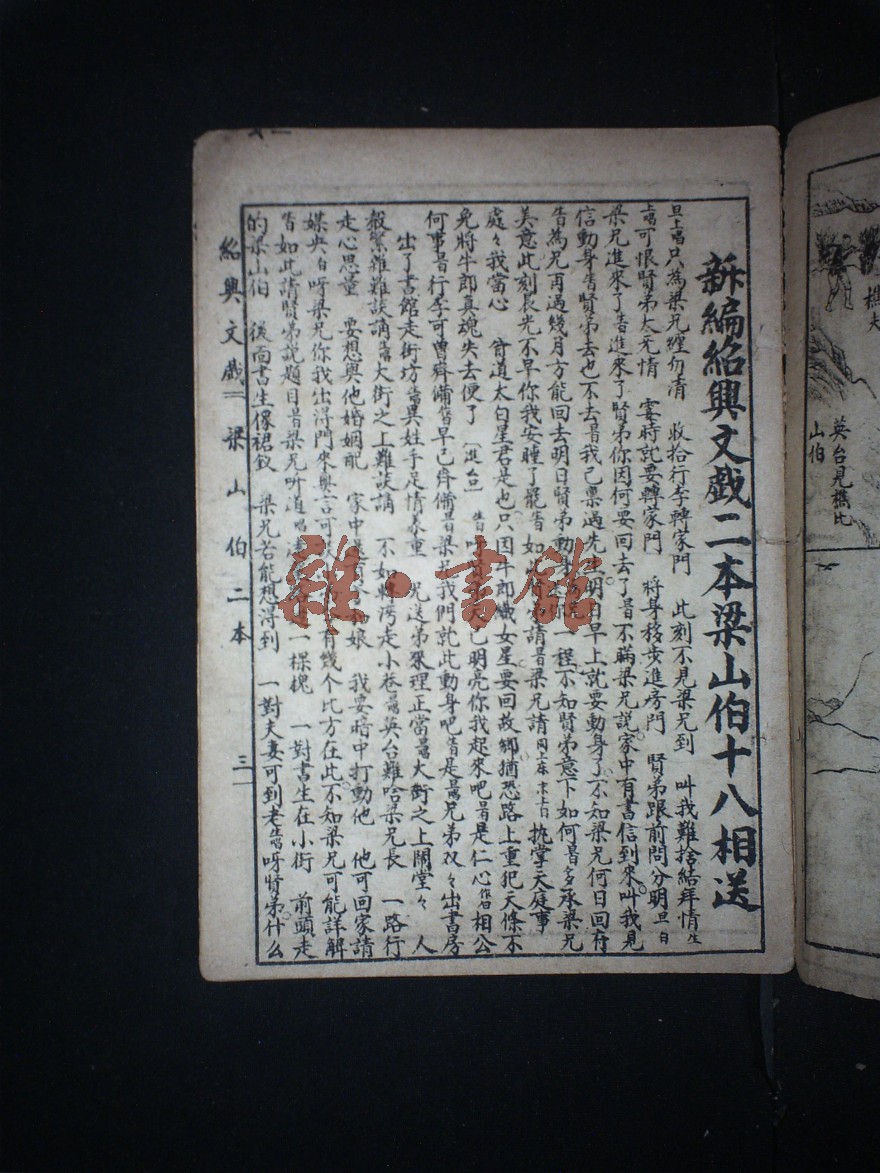 新編紹興文戲二本梁山伯十八相送
旦上唱只為梁兄纏勿清　收拾行李轉家門　此刻不見梁兄到　叫我難捨結拜情生
上唱可恨賢弟太无情　霎時就要轉家門　將身移步進房門　賢弟跟前問分明旦白
梁兄進來了生白進來了賢弟你因何要回去了旦白不瞞梁兄説家中有書信到來叫我見
信動身生白賢弟去也不去旦白我已禀過先生明日早上就要動身了不知梁兄何日回府
生白為兄再過幾月方能回去明日賢弟動身 你一程不知賢弟意下如何旦白多承梁兄
美意此刻辰光不早你我安睡了罷生白如此 請旦白梁兄請 执掌天庭事
處々我當心　白道太白星君是也只因牛郎織女星要回故鄉猶恐路上重犯天條不
免將牛郎真魂失去便了　〔進台〕 生白 已明亮你我起來吧旦白是仁心 相公
何事旦白行李可曾齊備 早已齊備旦白梁兄我們就此動身吧生白是 兄弟双々出書房
出了書館走街坊 異姓手足情义重　 送弟 理正當 大街之上鬧堂々　人
雜難談講 大街之上難談講　不如 湾走小巷 英台難哈梁兄長　一路行
走心思量　要想與他婚姻配　家中 娘　我要暗中打動他　他可回家請
媒央白呀梁兄你我出得門來與言可 有幾个比方在此不知梁兄可能詳解
生白如此請賢弟説題目旦白梁兄听道唱 一棵槐　一對書生在小街　前頭走
的梁山伯　後面書生像裙釵　梁兄若能想得到　一對夫妻可到老生唱呀賢弟什么
紹興文戲二　梁山伯二本　三
雜·書館
樵夫
英台見樵比
山伯